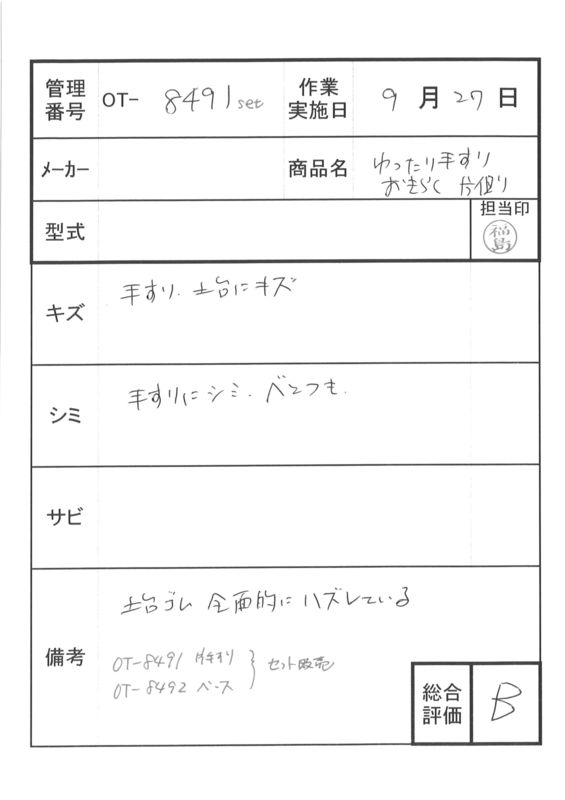 管理番号 OT- 8491set 作業実施日 9月27日
メーカー 商品名 ゆったり手すり
おきらく 片側り
型式 担当印
福島
キズ 手すり、土台にキズ
シミ 手すりにシミ、ベとつき、
サビ
土台ゴム 全面的にハズレている
備考
OT-8491 片手すり
OT-8492 ベース
セット販売
総合評価 B